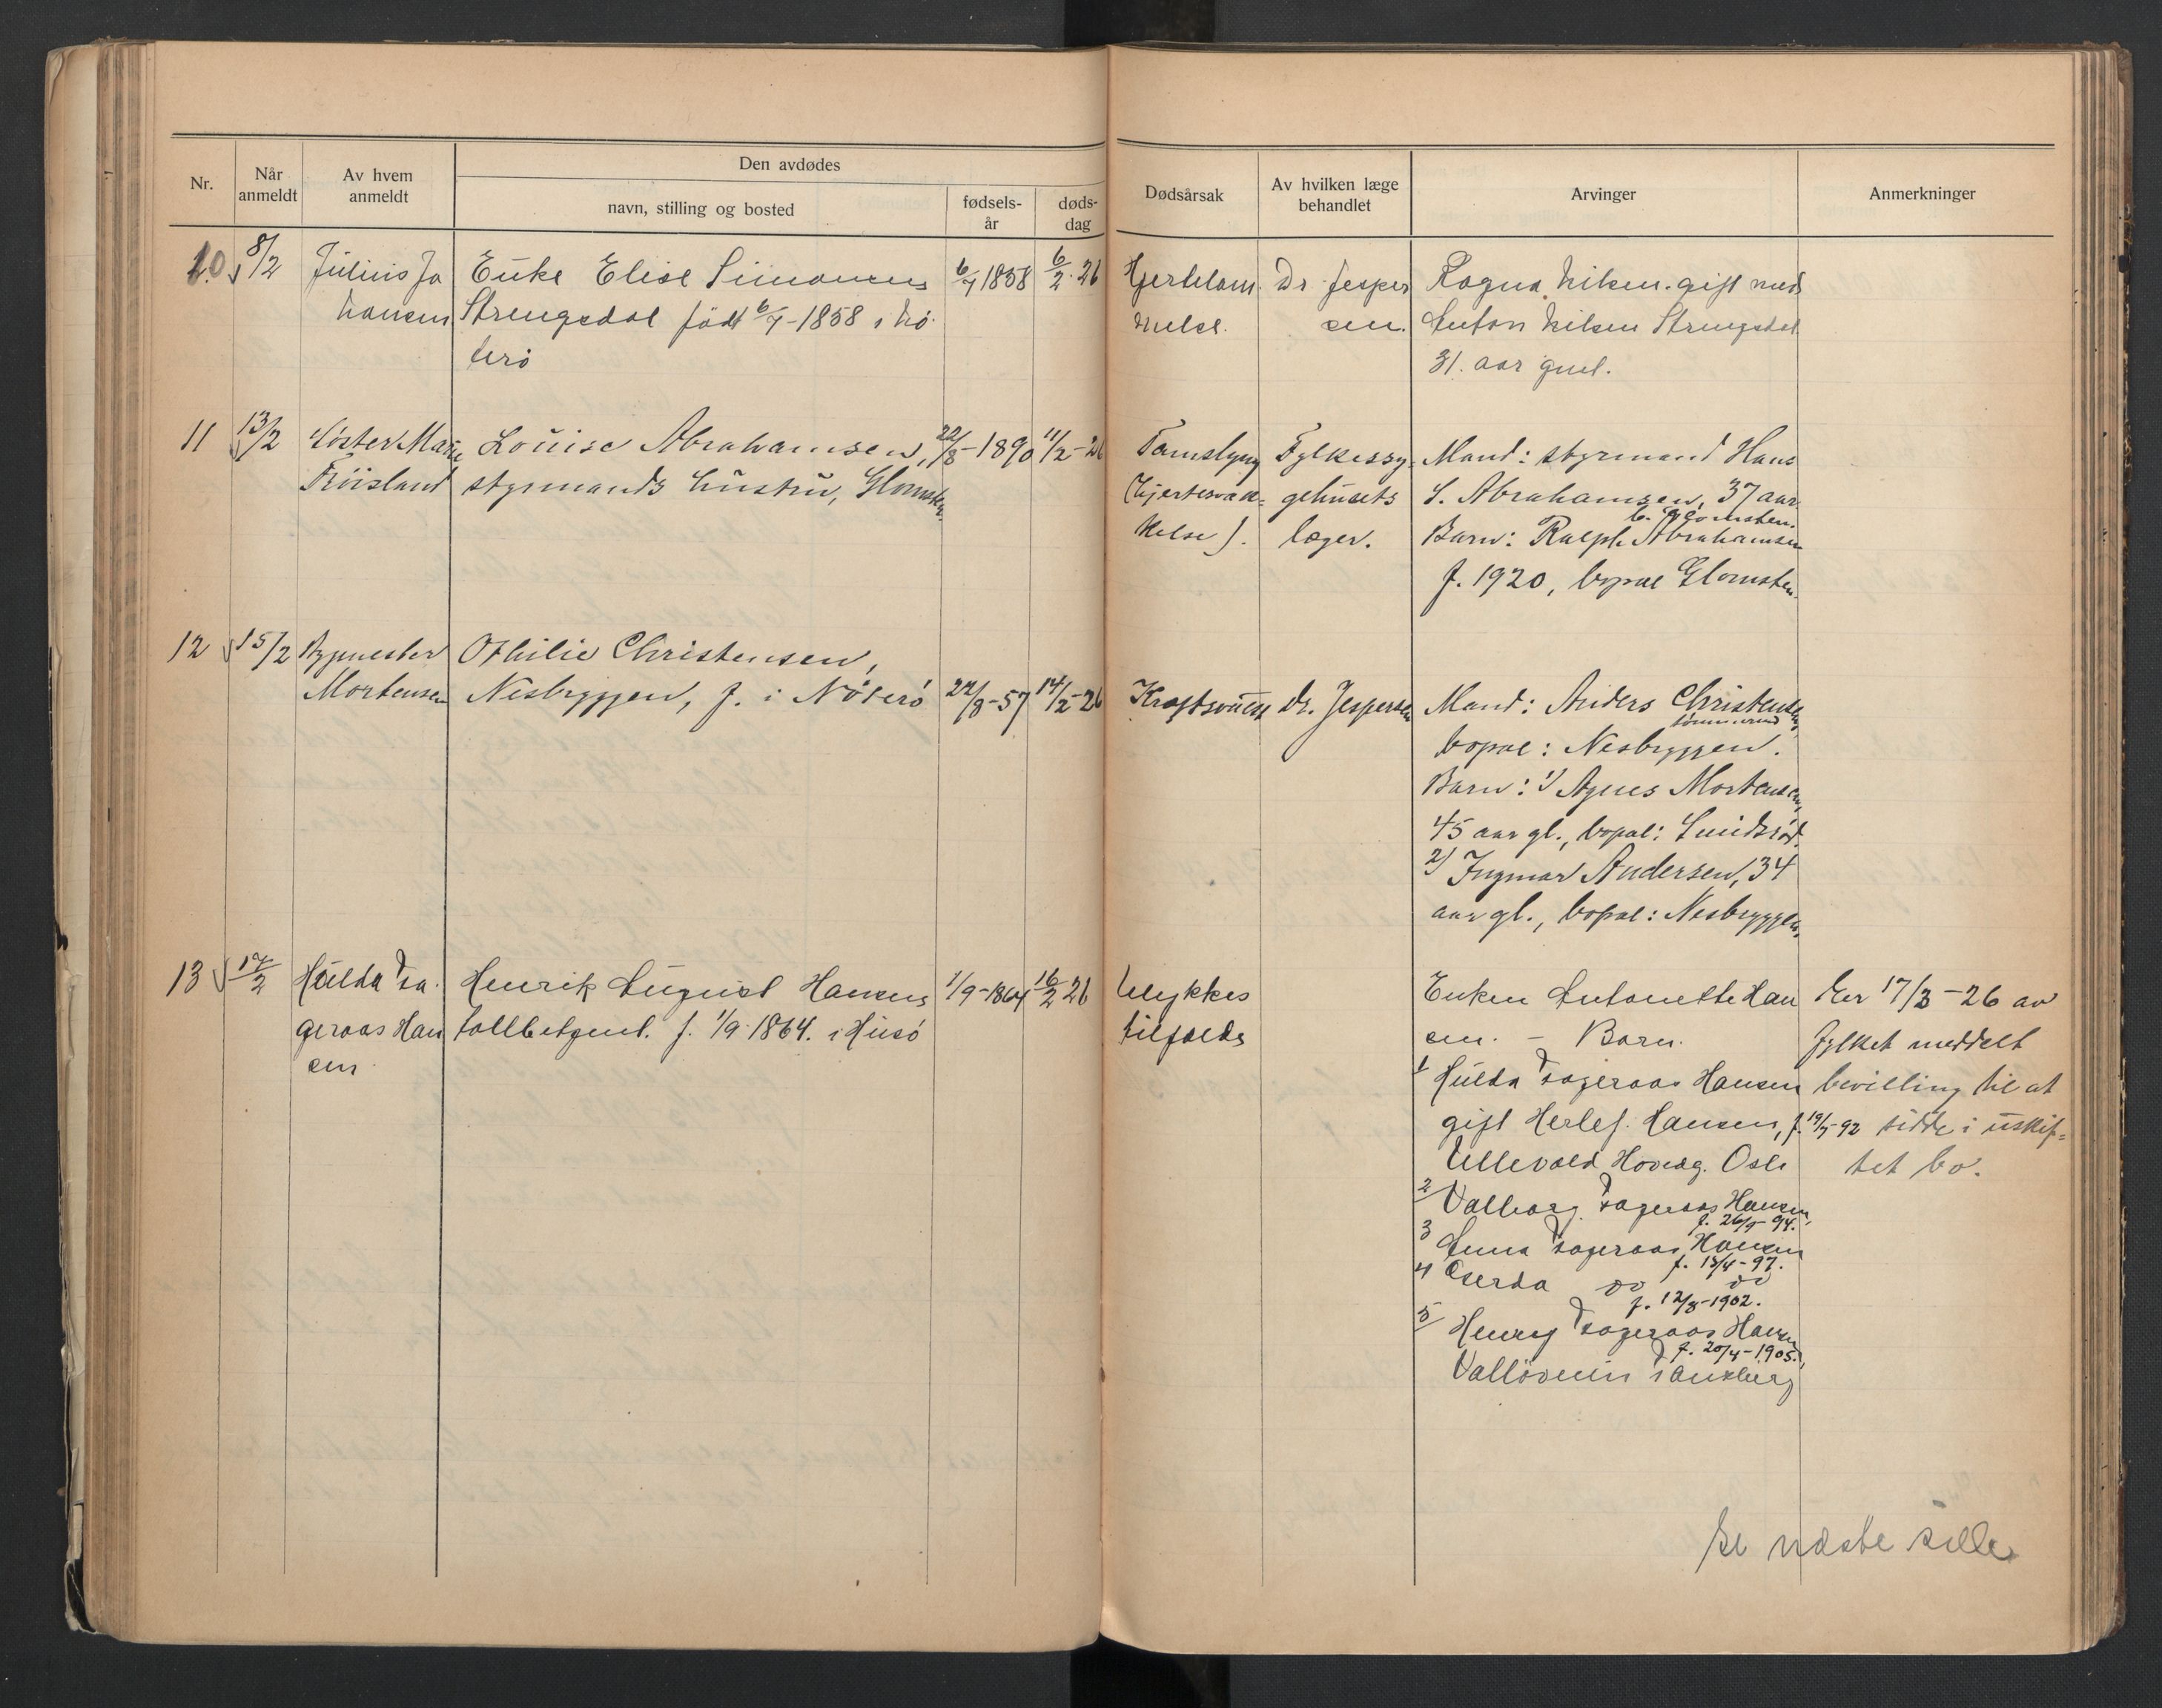 Nr.
Når anmeldt
Av hvem anmeldt
Den avdødes
navn, stilling og bosted
fødsels-år
døds-dag
Dødsårsak
Av hvilken læge behandlet
Arvinger
Anmerkninger
10. 8/2 Julius Jo
hansen
Enke Elise Simonsen
Strengsdal född 6/7-1858 i Nö.
terö
6/7 1858
6/2.26
Hjertelam
melse.
Dr Jesper
sen.
Ragna Nilsen. gift med
Anton Nilsen Strengsdal
31. aar gml.
11 13/2 Söster Marie
Fröisland
Louise Abrahamsen,
styrmands hustru, Glomsten.
22/8-1890
11/2-26
(hjertesvæk=
kelse).
Fylkessy=
gehusets
læger.
Mand: styrmand Hans
S. Abrahamsen, 37 aar.
b. Glomsten.
Barn: Ralph Abrahamsen
f. 1920, bopæl Glomsten.
12 15/2
Mortensen
Othilie Christensen,
Nesbryggen, f. i Nöterö
22/8-57
14/2-26
Kraftsvulst
Dr. Jespersen
Mand: Anders Christensen,
tömmermd
bopæl: Nesbryggen.
Barn: 1/ Agnes Mortensen,
45 aar gl., bopæl: Sundsröd.
2/ Ingmar Andersen, 34
aar gl., bopæl: Nesbryggen.
13 17/2 Hulda Ta.
geraas Han
sen
Henrik August Hansen
tollbetjent. f. 1/9 1864. i Husö
1/9-1864
16/2 26
Ulykkes
tilfælde
Enken Antonette Han
sen. - Barn.
1 Hulda Tageraas Hansen
gift Herlef. Hansen, f. 19/7-92
Ullevold Hovedg. Oslo
2 Valborg Tageraas Hansen,
f. 26/9-94.
3 Anna Tageraas Hansen
f. 13/4-97.
4 Gerda do do
f. 12/8-1902.
5 Henry Tageraas Hansen
f. 20/4-1905.
Vallöveien Tönsberg
Er 17/3-26 av
fylket meddelt
bevilling til at
sidde i uskif=
tet bo.
Se næste side